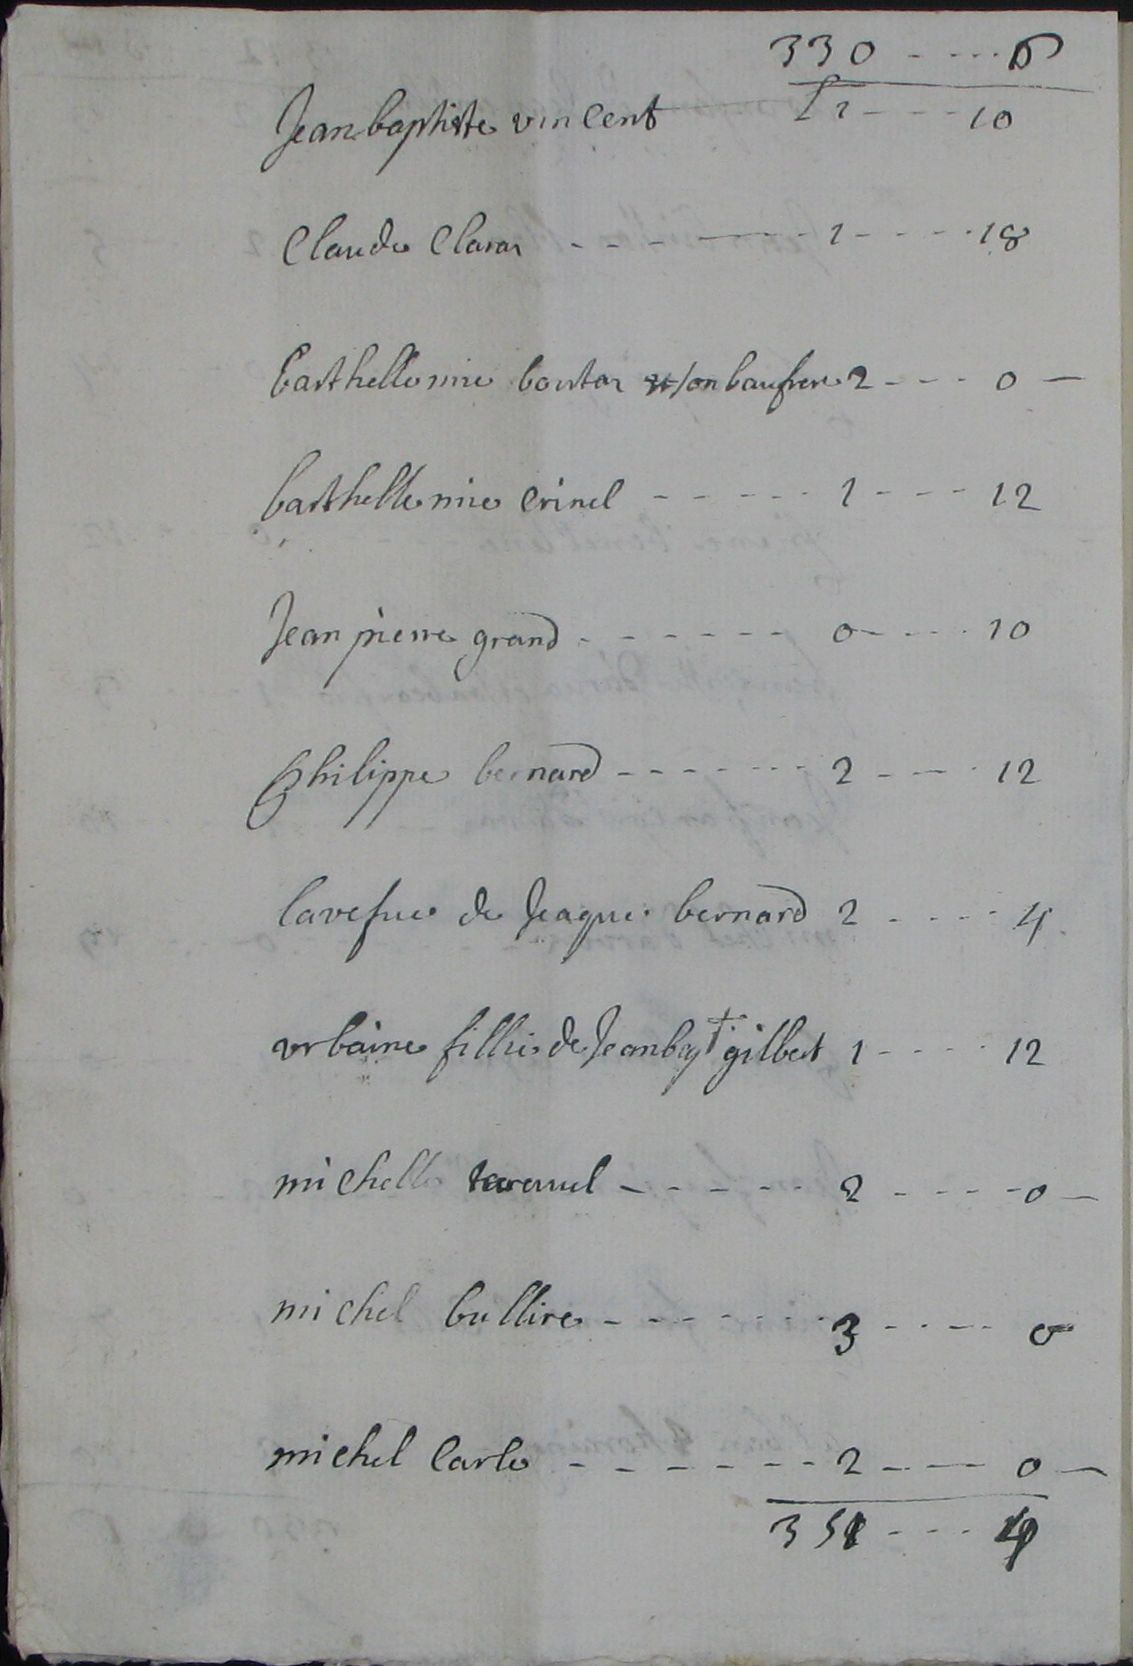 330 - - - - 6
Jean baptiste vincent 1 - - - - 10
Claude Clarar - - - - - 1 - - - - 18
barthellemie boutar et son baufrere 2 - - - 0 —
barthellemie Crinel - - - - - 1 - - - 12
Jean pierre grand - - - - - - 0 - - - - 10
philippe bernard - - - - - - 2 - - - 12
lavefue de Jeaque bernard 2 - - - - 4
urbaine fillie de Jean bapt gilbert 1 - - - - 12
michelle - - - - - 2 - - - - 0 —
michel bullire - - - - - - 3 - - - - 0
michel Carle - - - - - - 2 - - - 0 —
351 - - - 4